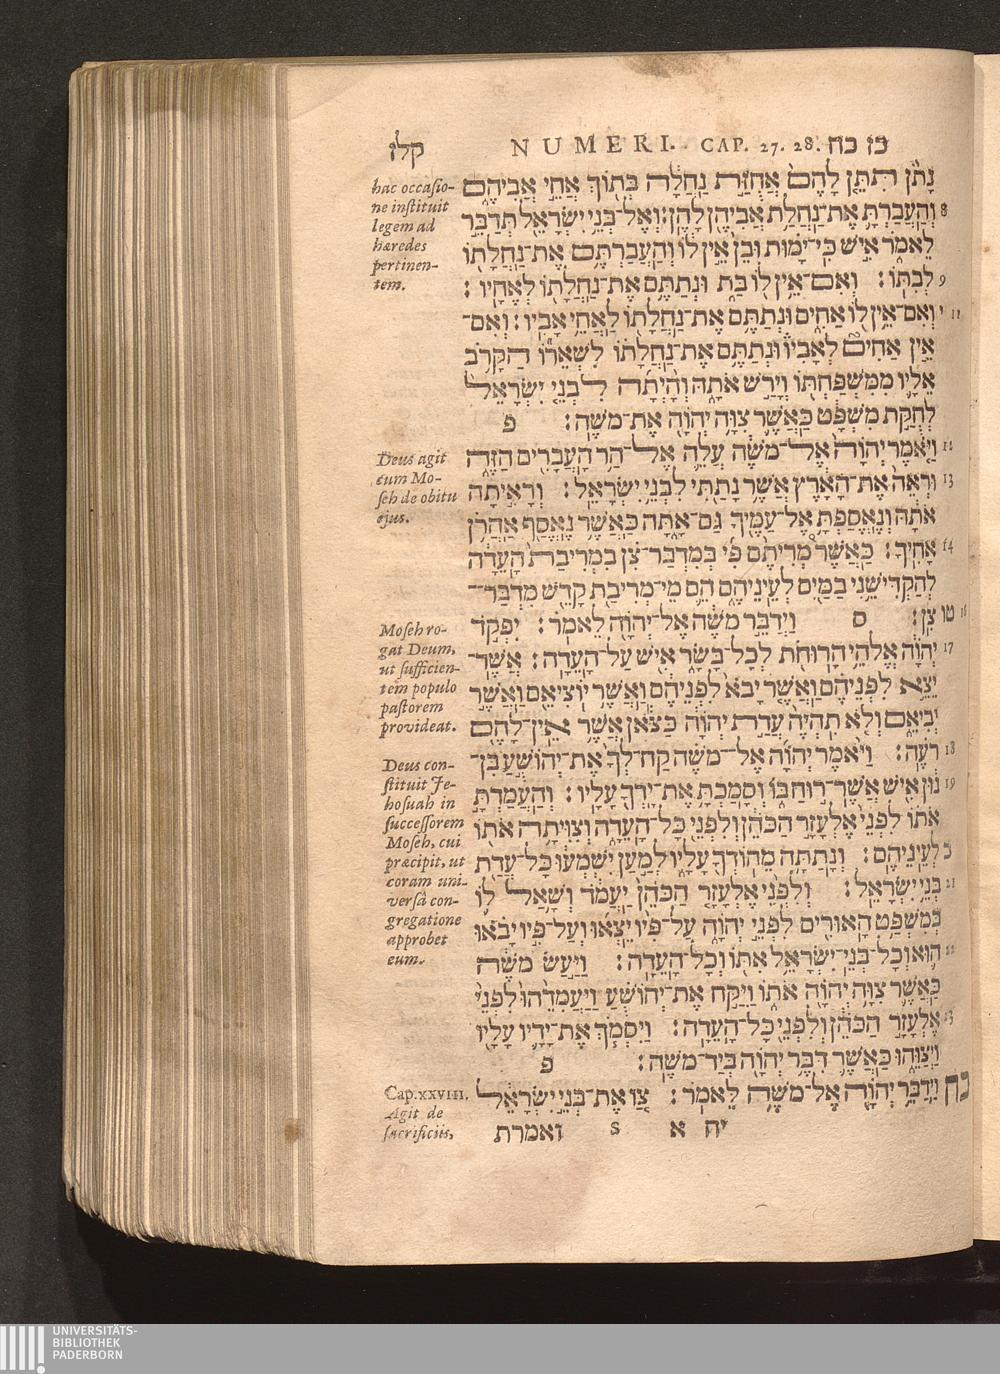 קלז NUMERI. CAP. 27. 28. כז כח
נָתֹן תִּתֵּן לָהֶם אֲחֻזַּת נַחֲלָה בְּתוֹךְ אֲחֵי אֲבִיהֶם
8 וְהַעֲבַרְתָּ אֶת־נַחֲלַת אֲבִיהֶן לָהֶן׃ וְאֶל־בְּנֵי יִשְׂרָאֵל תְּדַבֵּר
לֵאמֹר אִישׁ כִּי־יָמוּת וּבֵן אֵין לוֹ וְהַעֲבַרְתֶּם אֶת־נַחֲלָתוֹ
9 לְבִתּוֹ׃ וְאִם־אֵין לוֹ בַּת וּנְתַתֶּם אֶת־נַחֲלָתוֹ לְאֶחָיו׃
י 11 וְאִם־אֵין לוֹ אַחִים וּנְתַתֶּם אֶת־נַחֲלָתוֹ לַאֲחֵי אָבִיו׃ וְאִם־
אֵין אַחִים לְאָבִיו וּנְתַתֶּם אֶת־נַחֲלָתוֹ לִשְׁאֵרוֹ הַקָּרֹב
אֵלָיו מִמִּשְׁפַּחְתּוֹ וְיָרַשׁ אֹתָהּ וְהָיְתָה לִבְנֵי יִשְׂרָאֵל
לְחֻקַּת מִשְׁפָּט כַּאֲשֶׁר צִוָּה יְהוָה אֶת־מֹשֶׁה׃ פ
12 וַיֹּאמֶר יְהוָה אֶל־מֹשֶׁה עֲלֵה אֶל־הַר הָעֲבָרִים הַזֶּה
13 וּרְאֵה אֶת־הָאָרֶץ אֲשֶׁר נָתַתִּי לִבְנֵי יִשְׂרָאֵל׃ וְרָאִיתָה
אֹתָהּ וְנֶאֱסַפְתָּ אֶל־עַמֶּיךָ גַּם־אָתָּה כַּאֲשֶׁר נֶאֱסַף אַהֲרֹן
14 אָחִיךָ׃ כַּאֲשֶׁר מְרִיתֶם פִּי בְּמִדְבַּר־צִן בִּמְרִיבַת הָעֵדָה
לְהַקְדִּישֵׁנִי בַמַּיִם לְעֵינֵיהֶם הֵם מֵי־מְרִיבַת קָדֵשׁ מִדְבַּר־
טו 16 צִן׃ ס וַיְדַבֵּר מֹשֶׁה אֶל־יְהוָה לֵאמֹר׃ יִפְקֹד
17 יְהוָה אֱלֹהֵי הָרוּחֹת לְכָל־בָּשָׂר אִישׁ עַל־הָעֵדָה׃ אֲשֶׁר־
יֵצֵא לִפְנֵיהֶם וַאֲשֶׁר יָבֹא לִפְנֵיהֶם וַאֲשֶׁר יוֹצִיאֵם וַאֲשֶׁר
יְבִיאֵם וְלֹא תִהְיֶה עֲדַת יְהוָה כַּצֹּאן אֲשֶׁר אֵין־לָהֶם
18 רֹעֶה׃ וַיֹּאמֶר יְהוָה אֶל־מֹשֶׁה קַח־לְךָ אֶת־יְהוֹשֻׁעַ בִּן־
19 נוּן אִישׁ אֲשֶׁר־רוּחַ בּוֹ וְסָמַכְתָּ אֶת־יָדְךָ עָלָיו׃ וְהַעֲמַדְתָּ
אֹתוֹ לִפְנֵי אֶלְעָזָר הַכֹּהֵן וְלִפְנֵי כָּל־הָעֵדָה וְצִוִּיתָה אֹתוֹ
כ לְעֵינֵיהֶם׃ וְנָתַתָּה מֵהוֹדְךָ עָלָיו לְמַעַן יִשְׁמְעוּ כָּל־עֲדַת
21 בְּנֵי יִשְׂרָאֵל׃ וְלִפְנֵי אֶלְעָזָר הַכֹּהֵן יַעֲמֹד וְשָׁאַל לוֹ
בְּמִשְׁפַּט הָאוּרִים לִפְנֵי יְהוָה עַל־פִּיו יֵצְאוּ וְעַל־פִּיו יָבֹאוּ
22 הוּא וְכָל־בְּנֵי־יִשְׂרָאֵל אִתּוֹ וְכָל־הָעֵדָה׃ וַיַּעַשׂ מֹשֶׁה
כַּאֲשֶׁר צִוָּה יְהוָה אֹתוֹ וַיִּקַּח אֶת־יְהוֹשֻׁעַ וַיַּעֲמִדֵהוּ לִפְנֵי
23 אֶלְעָזָר הַכֹּהֵן וְלִפְנֵי כָּל־הָעֵדָה׃ וַיִּסְמֹךְ אֶת־יָדָיו עָלָיו
וַיְצַוֵּהוּ כַּאֲשֶׁר דִּבֶּר יְהוָה בְּיַד־מֹשֶׁה׃ פ
כח וַיְדַבֵּר יְהוָה אֶל־מֹשֶׁה לֵּאמֹר׃ צַו אֶת־בְּנֵי יִשְׂרָאֵל
יח א s ואמרת
hac occasio-
ne instituit
legem ad
hæredes
pertinen-
tem.
Deus agit
cum Mo-
seh de obitu
ejus.
Moseh ro-
gat Deum,
ut sufficien-
tem populo
pastorem
provideat.
Deus con-
stituit Je-
hosuah in
successorem
Moseh, cui
præcipit, ut
coram uni-
versâ con-
gregatione
approbet
eum.
Cap. XXVIII.
Agit de
sacrificiis,
UNIVERSITÄTS-
BIBLIOTHEK
PADERBORN